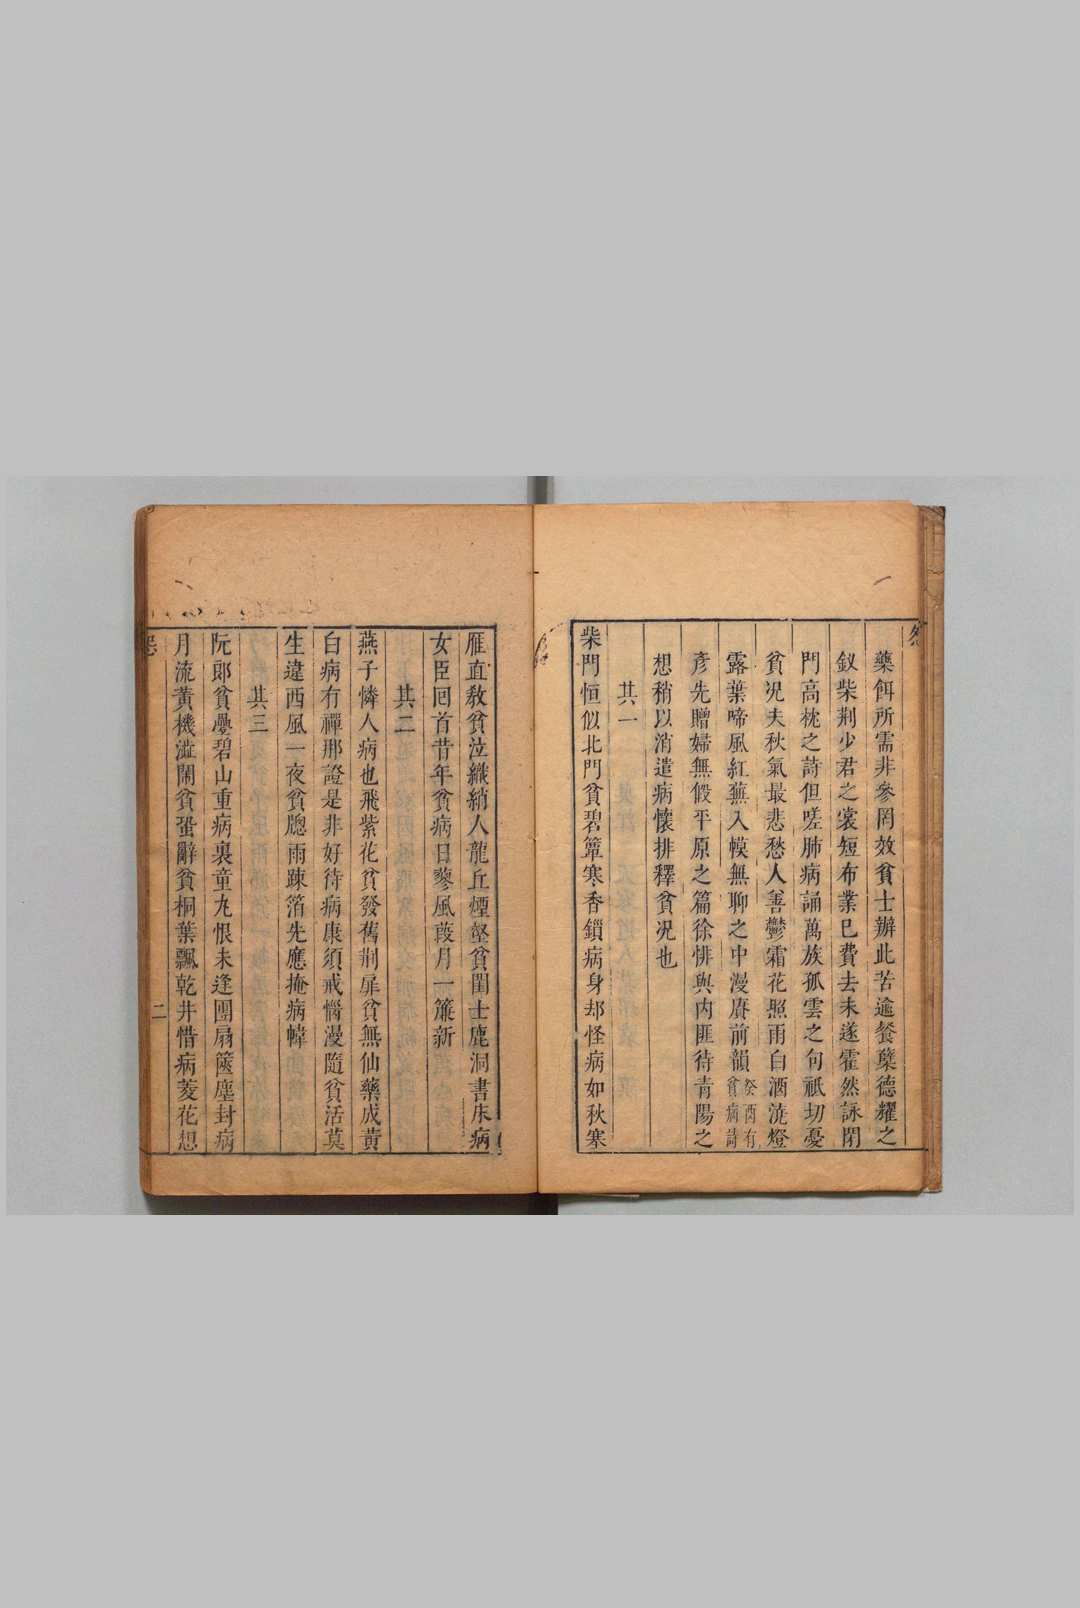 藥餌所需非參罔效貧士辦此苦逾餐蘗德耀之
釵柴荆少君之裳短布業已費去未遂霍然詠閉
門高枕之詩但嗟肺病誦萬族孤雲之句祇切憂
貧况夫秋氣最悲愁人善鬱霜花照雨白酒澆燈
露葉啼風紅蕪入幙無聊之中漫賡前韻癸酉有貧病詩
彥先贈婦無假平原之篇徐悱與內匪待青陽之
想稍以消遣病懷排釋貧况也
其一
柴門恒似北門貧碧簟寒香鎖病身却怪病如秋寒
雁直教貧泣織綃人龍丘煙壑貧閨士鹿洞書牀病
女臣回首昔年貧病日蓼風葭月一簾新
其二
燕子憐人病也飛紫花貧發舊荆扉貧無仙藥成黄
白病有禪那證是非好待病康須戒惱漫隨貧活莫
生違西風一夜貧牕雨踈箔先應掩病幃
其三
阮郎貧壘碧山重病裏童九恨未逢團扇篋塵封病
月流黄機澁閙貧蛩辭貧桐葉飄乾井惜病菱花想
二